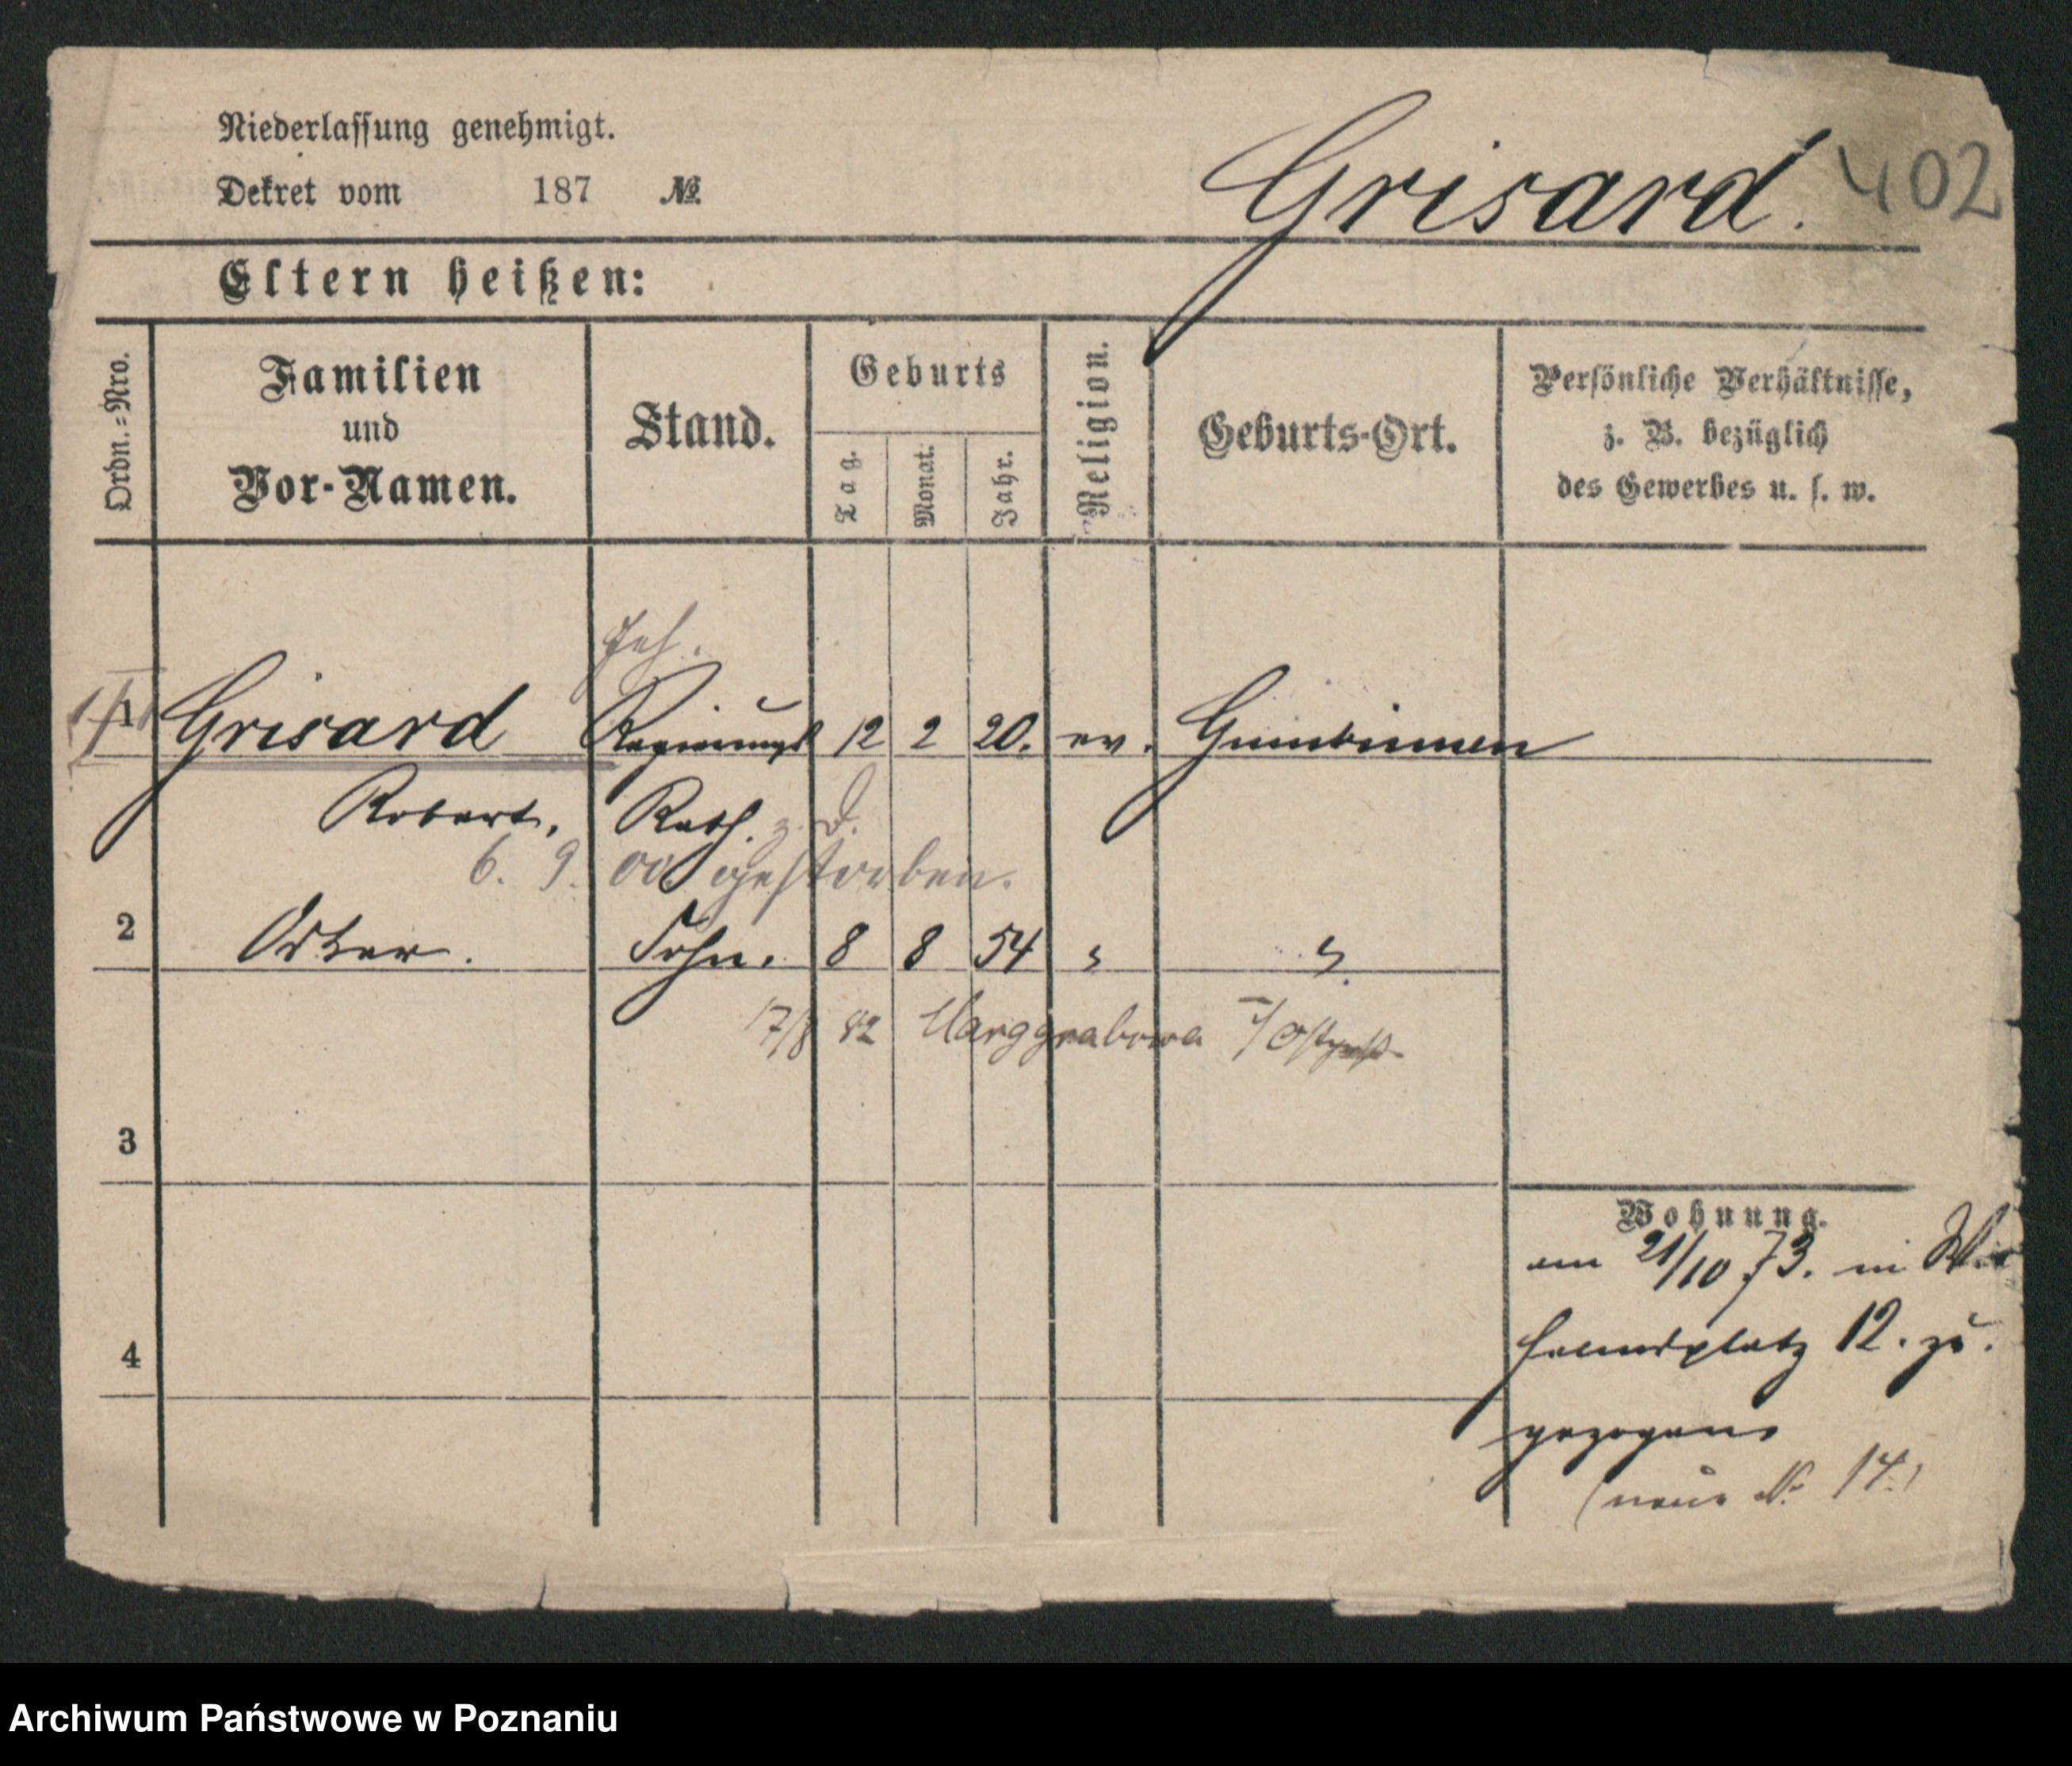 Niederlassung genehmigt.
Dekret vom 187 № Grisard. 402
Eltern heißen:
Ordn.=Nro. Familien und Vor-Namen. Stand. Geburts Tag. Monat. Jahr. Religion. Geburts-Ort. Persönliche Verhältnisse, z. B. bezüglich des Gewerbes u. s. w.
Geh.
1 Grisard Regierungs 12 2 20. ev. Gumbinnen
Robert. Rath. z. D.
6. 9. 00 gestorben.
2 Oskar. Sohn. 8 8 54 " "
17/8 82 Marggrabowa i/Ostpr.
3
4
Wohnung.
am 21/10 73. in
helmsplatz 12. zu.
gezogen
(neue № 14.)
Archiwum Państwowe w Poznaniu